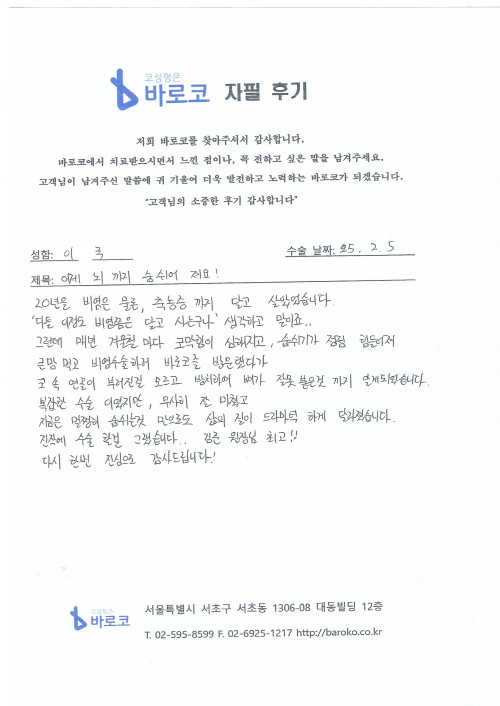 코성형은
바로코 자필 후기
저희 바로코를 찾아주셔서 감사합니다.
바로코에서 치료받으시면서 느낀 점이나, 꼭 전하고 싶은 말을 남겨주세요.
고객님이 남겨주신 말씀에 귀 기울여 더욱 발전하고 노력하는 바로코가 되겠습니다.
"고객님의 소중한 후기 감사합니다"
성함: 이 국 수술 날짜: 25. 2. 5
제목: 이제 뇌 까지 숨쉬어 져요!
20년을 비염은 물론, 축농증 까지 달고 살았었습니다.
'다들 이정도 비염쯤은 달고 사는구나' 생각하고 말이죠..
그런데 매년 겨울철 마다 코막힘이 심해지고, 숨쉬기가 점점 힘들어져
큰맘 먹고 비염수술하러 바로코를 방문했다가
코 속 연골이 부러진걸 모르고 방치하여 뼈가 잘못 붙은것 까지 알게되었습니다.
복잡한 수술 이였지만, 무사히 잘 마쳤고
지금은 멀쩡히 숨쉬는것 만으로도 삶의 질이 드라마틱 하게 달라졌습니다.
진작에 수술 할걸 그랬습니다.. 원장님 최고!!
다시 한번 진심으로 감사드립니다!
코성형은
바로코
서울특별시 서초구 서초동 1306-08 대동빌딩 12층
T. 02-595-8599 F. 02-6925-1217 http://baroko.co.kr